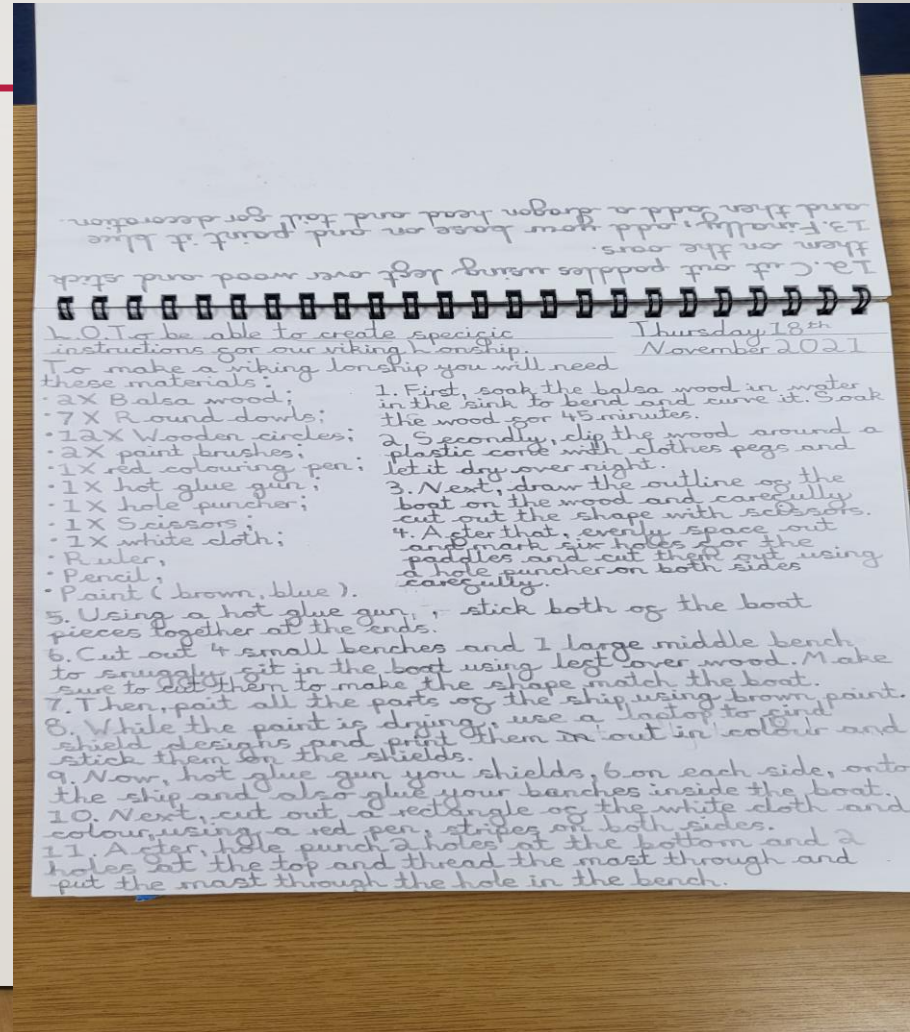 L.O. To be able to create specific
instructions for our viking Lonship.
Thursday 18th
November 2021
To make a viking lonship you will need
these materials:
• 2X Balsa wood;
• 7X Round dowls;
• 12X Wooden circles;
• 2X paint brushes;
• 1X red colouring pen;
• 1X hot glue gun;
• 1X hole puncher;
• 1X Scissors;
• 1X white cloth;
• Ruler,
• Pencil,
• Paint (brown, blue).
1. First, soak the balsa wood in water
in the sink to bend and curve it. Soak
the wood for 45 minutes.
2. Secondly, clip the wood around a
plastic cone with clothes pegs and
let it dry over night.
3. Next, draw the outline of the
boat on the wood and carefully
cut out the shape with scissors.
4. After that, evenly space out
and mark six holes for the
paddles and cut them out using
a hole puncher on both sides
carefully.
5. Using a hot glue gun, stick both of the boat
pieces together at the ends.
6. Cut out 4 small benches and 1 large middle bench
to snuggly sit in the boat using left over wood. Make
sure to cut them to make the shape match the boat.
7. Then, pait all the parts of the ship using brown paint.
8. While the paint is drying, use a laptop to find
shield designs and print them out in colour and
stick them on the shields.
9. Now, hot glue gun you shields, 6 on each side, onto
the ship and also glue your benches inside the boat.
10. Next, cut out a rectangle of the white cloth and
colour, using a red pen, stripes on both sides.
11. After, hole punch 2 holes at the bottom and 2
holes at the top and thread the mast through and
put the mast through the hole in the bench.
12. Cut out paddles using left over wood and stick
them on the oars.
13. Finally, add your base on and paint it blue
and then add a dragon head and tail for decoration.